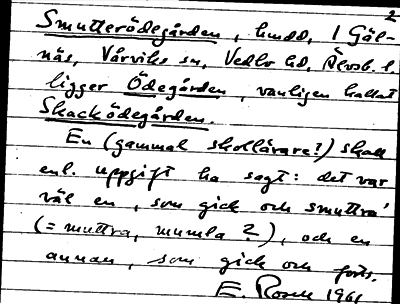 2
Smutterödegården, hmdd, I Gäl-
näs, Vårviks sn, Vedbo hd, Älvsb. l.
ligger Ödegården, vanligen kallat
Skacködegården.
En (gammal skollärare?) skall
enl. uppgift ha sagt: det var
väl en, som gick och smuttra'
(= muttra, mumla?), och en
annan, som gick och forts.
E. Rosell 1961